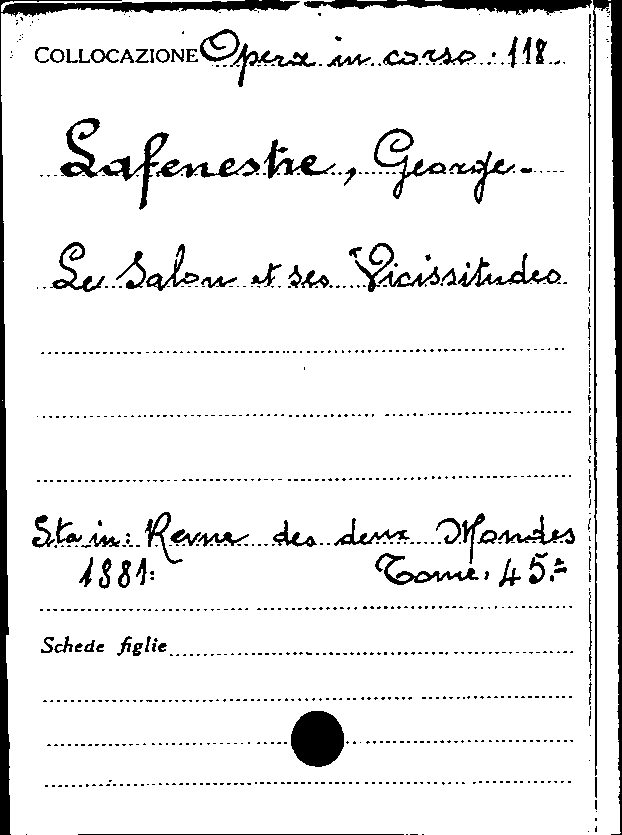 COLLOCAZIONE Opera in corso. 118.
Lafenestre, George.
Le Salon et ses Vicissitudes
Sta in: Revue des deux Mondes
1881. Tome. 45.º
Schede figlie